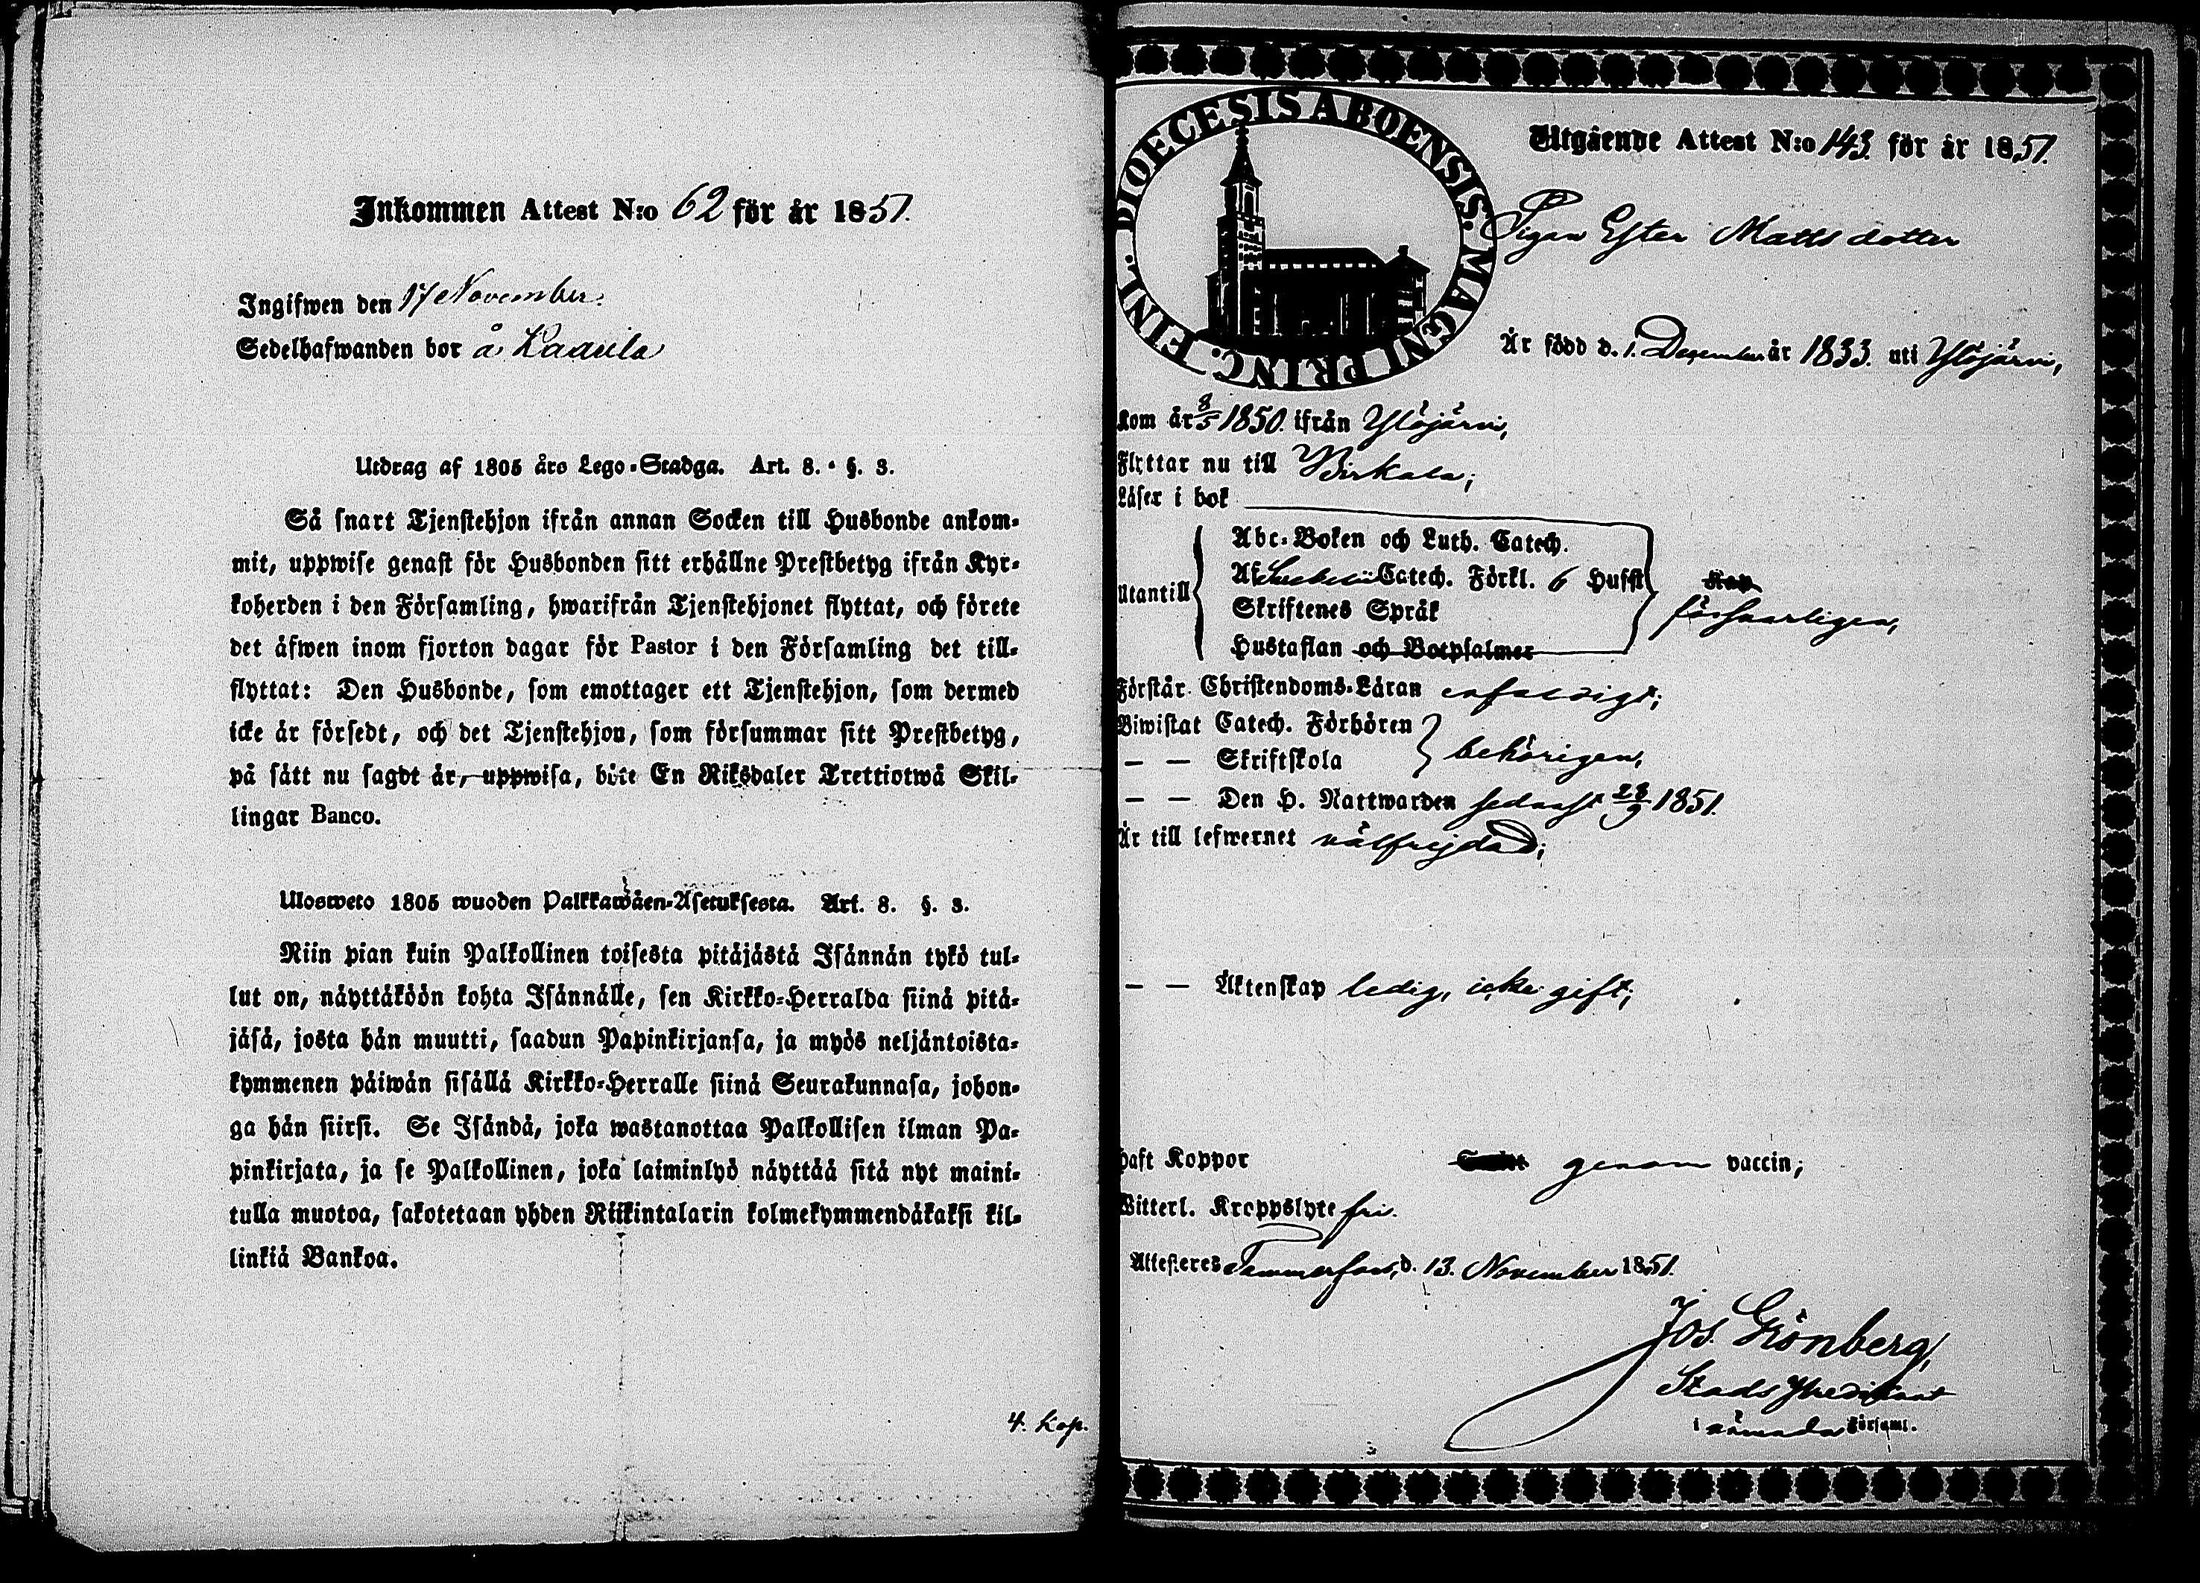 Inkommen Attest N:o 62 för år 1851.
Ingifwen den 17 November.
Sedelhafwanden bor å Kaarila
Utdrag af 1805 års Lego-Stadga. Art. 8. §. 3.
Så snart Tjenstehjon ifrån annan Socken till Husbonde ankom-
mit, uppwise genast för Husbonden sitt erhållne Prestbetyg ifrån Kyr-
koherden i den Församling, hwarifrån Tjenstehjonet flyttat, och förete
det äfwen inom fjorton dagar för Pastor i den Församling det till-
flyttat: Den Husbonde, som emottager ett Tjenstehjon, som dermed
icke är försedt, och det Tjenstehjon, som försummar sitt Prestbetyg,
på sätt nu sagdt är, uppwisa, böte En Riksdaler Trettiotwå Skil-
lingar Banco.
Ulosweto 1805 wuoden Palkkawäen-Asetuksesta. Art. 8. §. 3.
Niin pian kuin Palkollinen toisesta pitäjästä Isännän tykö tul-
lut on, näyttäköön kohta Isännälle, sen Kirkko-Herralda siinä pitä-
jäsä, josta hän muutti, saadun Papinkirjansa, ja myös neljäntoista-
kymmenen päiwän sisällä Kirkko-Herralle siinä Seurakunnasa, johon-
ga hän siirsi. Se Isändä, joka wastanottaa Palkollisen ilman Pa-
pinkirjata, ja se Palkollinen, joka laiminlyö näyttää sitä nyt maini-
tulla muotoa, sakotetaan yhden Riikintalarin kolmekymmendäkaksi kil-
linkiä Bankoa.
4. Kop.
FINL. DIOECESIS ABOENSIS. MAGNI PRINC.
Utgående Attest N:o 143. för år 1851.
Pigan Ester Mattsdotter
Är född d. 1. December år 1833. uti Ylöjärvi,
kom år 8/5 1850. ifrån Ylöjärvi,
Flyttar nu till Birkala;
Läser i bok
Utantill
Abc-Boken och Luth. Catech.
Af Catech. Förkl. 6 Hufst
Skriftenes Språk
Hustaflan och Botpsalmer
försvarligen,
Förstår Christendoms-Läran enfaldigt;
Biwistat Catech. Förhören
— — Skriftskola
behörigen,
— — Den H. Nattwarden sednast 28/9 1851.
Är till lefwernet välfrejdad;
— — Äktenskap ledig, icke gift;
haft Koppor genom vaccin;
Witterl. Kroppslyte fri.
Attesteres Tammerfors, d. 13. November 1851.
Jos. Grönberg,
Stads Predikant
i nämnda Församl.